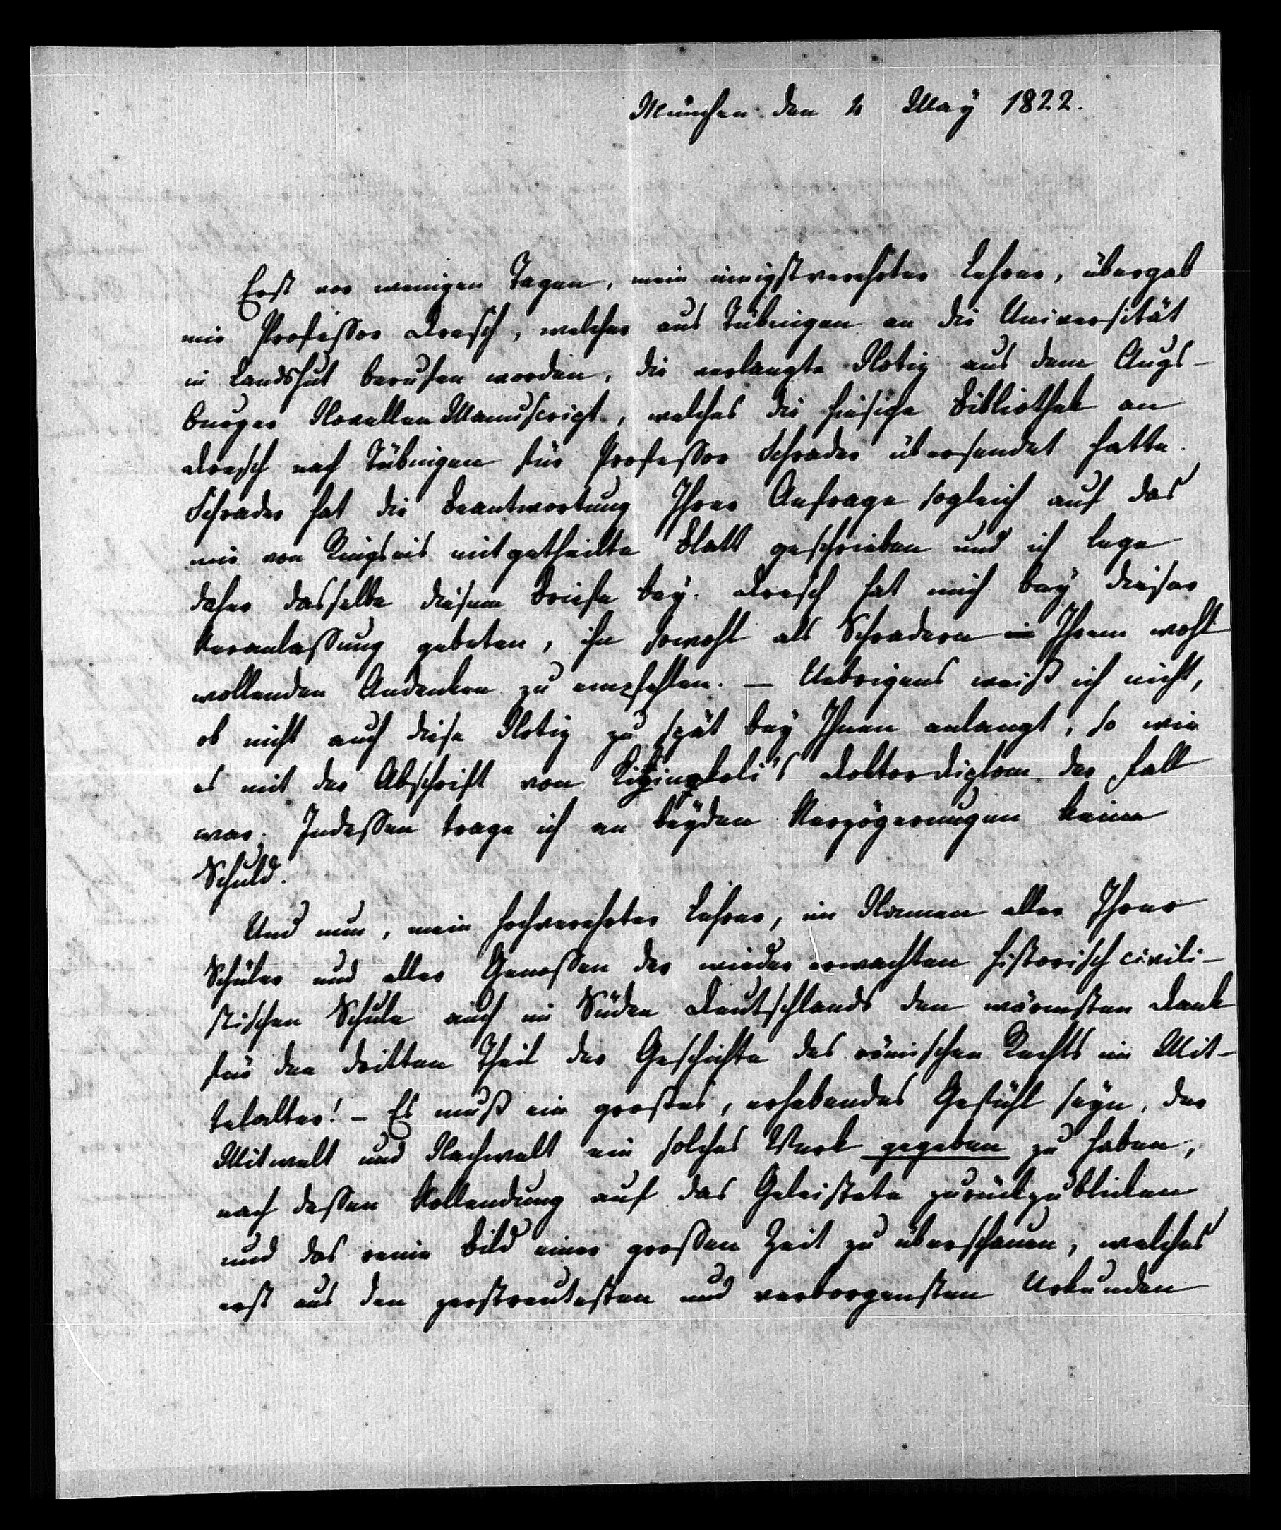 München den 4 May 1822.
Erst vor wenigen Tagen, mein innigstverehrter Lehrer, übergab
mir Professor Dresch, welcher aus Tübingen an die Universität
in Landshut berufen worden, die verlangte Notiz aus dem Augs-
burger Novellen Manuscript, welches die hiesige Bibliothek an
Dresch nach Tübingen für Professor Schrader übersendet hatte.
Schrader hat die Beantwortung Ihrer Anfrage sogleich auf das
mir von Ringseis mitgetheilte Blatt geschrieben und ich lege
daher dasselbe diesem Briefe bey. Dresch hat mich bey dieser
Veranlassung gebeten, ihn sowohl als Schradern in Ihrem wohl
wollenden Andenken zu empfehlen. – Uebrigens weiß ich nicht,
ob nicht auch diese Notiz zu spät bey Ihnen anlangt, so wie
es mit der Abschrift von Doktordiplom der Fall
war. Indessen trage ich an beyden Verzögerungen keine
Schuld.
Und nun, mein hochverehrter Lehrer, im Namen aller Ihrer
Schüler und aller Genossen der wieder erwachten historisch civili-
stischen Schule auch im Süden Deutschlands den wärmsten Dank
für den dritten Theil der Geschichte des römischen Rechts im Mit-
telalter! – Es muß ein großes, erhebendes Gefühl seyn, der
Mitwelt und Nachwelt ein solches Werk gegeben zu haben,
nach dessen Vollendung auf das Geleistete zurückzublicken
und das reine Bild einer großen Zeit zu überschauen, welches
erst aus den zerstreutesten und verborgensten Urkunden